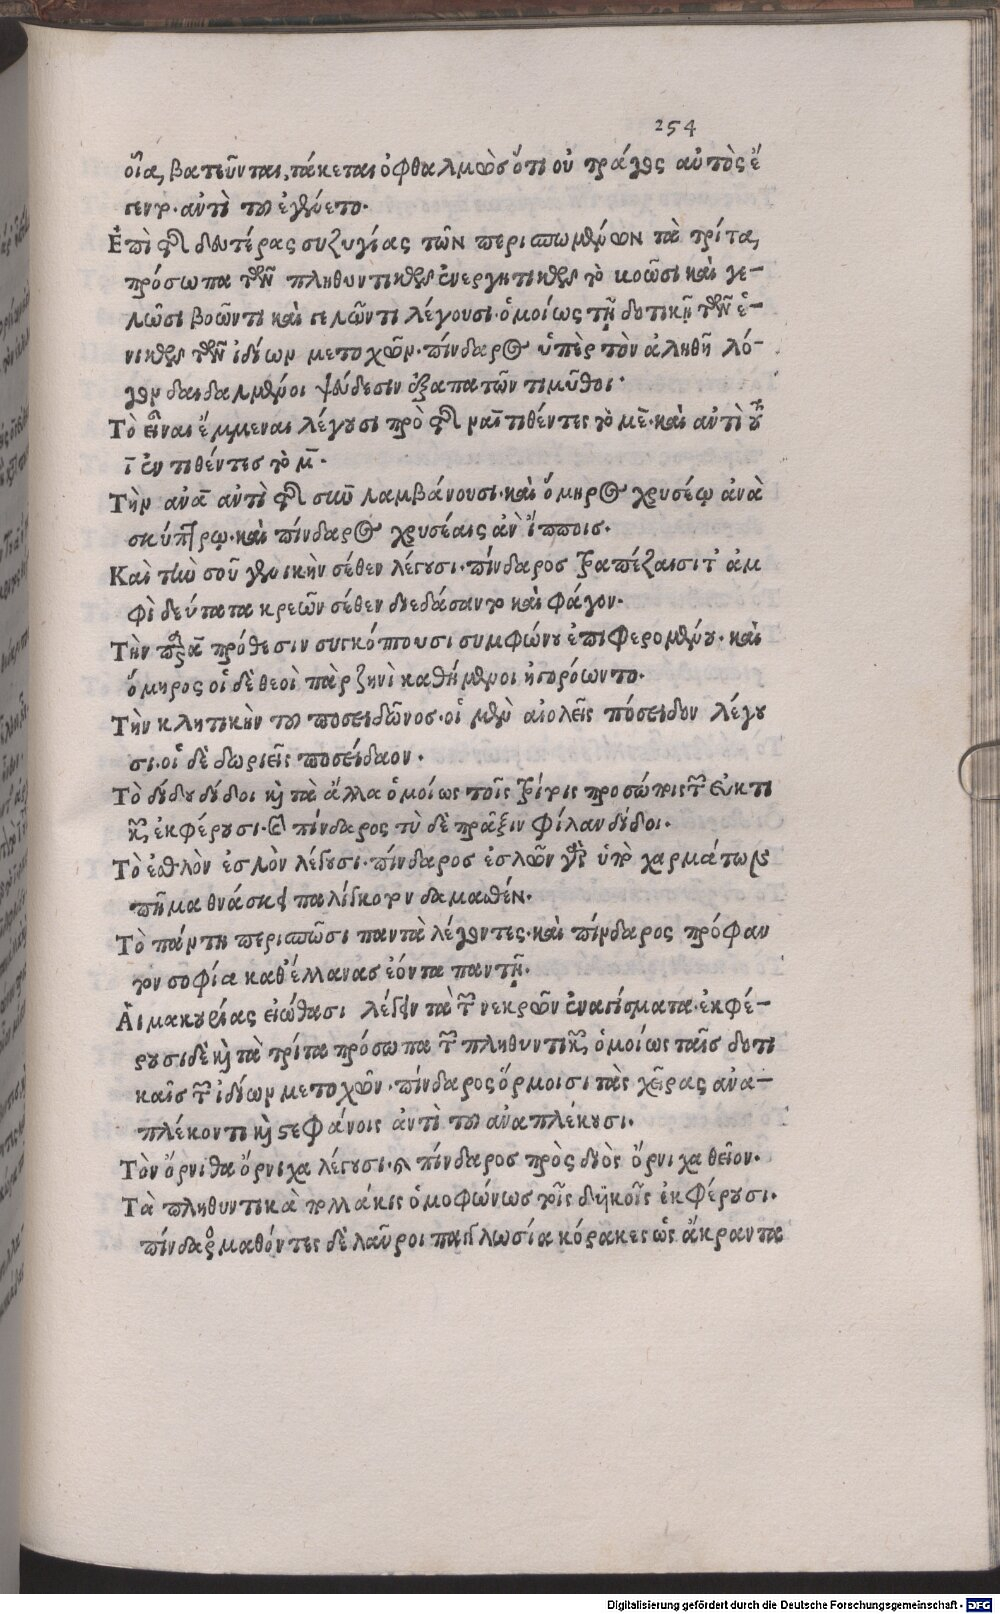 254
οἷα, βατεῦνται, τάκεται ὀφθαλμὼσ ὅτι οὐ τράγος αὐτὸς ἔ
γεντο. αὐτὶ τοῦ ἐγένετο.
Ἐπὶ τῆς δευτέρας συζυγίας τῶν περισπωμένων τὰ τρίτα,
πρόσωπα τῶν πληθυντικῶν ἐνεργητικῶν τὸ κοῶσι καὶ γε-
λῶσι βοῶντι καὶ γελῶντι λέγουσι. ὁμοίως τῇ δοτικῇ τῶν ἑ-
νικῶν τῶν ἰδίων μετοχῶν. πίνδαρος ὑπὲρ τὸν ἀληθῆ λό-
γον δαιδαλμένοι ψεύδεσιν ἐξαπατῶντι μῦθοι.
Τὸ εἶναι ἔμμεναι λέγουσι πρὸ τῆς ναῑ τιθέντες τὸ με̄. καὶ αὐτὶ τοῦ
ῑ ἐν τιθέντεσ τὸ μ̄.
Τὴν ἀνὰ αὐτὶ τῆς σὺν λαμβάνουσι. καὶ ὅμηρος χρυσέῳ ἀνὰ
σκήπτρῳ. καὶ πίνδαρος χρυσέαις ἀν ἵπποισ.
Καὶ τὴν σοῦ γενικὴν σέθεν λέγουσι. πίνδαροσ τραπέζαισι τ' ἀμ
φὶ δεύτατα κρεῶν σέθεν διεδάσαντο καὶ φάγον.
Τὴν παρὰ πρόθεσιν συγκόπτουσι συμφώνου ἐπιφερομένου. καὶ
ὅμηρος οἱ δὲ θεοὶ πὰρ ζηνὶ καθήμενοι ἠγορόωντο.
Τὴν κλητικὴν τοῦ ποσειδῶνοσ. οἱ μὲν αἰολεῖς πόσειδον λέγου
σι. οἱ δὲ δωριεῖς ποσείδαον.
Τὸ δίδου δίδοι καὶ τὰ ἄλλα ὁμοίως τοῖς τρίτοις προσώποις τῶν εὐκτι
κῶν ἐκφέρουσι. καὶ πίνδαρος τὺ δὲ πρᾶξιν φίλαν δίδοι.
Τὸ ἐσθλὸν ἐσλὸν λέγουσι. πίνδαροσ ἐσλῶν γὰρ ὑπὸ χαρμάτων
πῆμα θνάσκει παλίγκοτον δαμασθέν.
Τὸ πάντη περισπῶσι παντᾶ λέγοντες. καὶ πίνδαρος πρόφαν
τον σοφία καθ' ἕλλανασ ἐόντα παντῆ.
Αἱμακουρίας εἰώθασι λέγειν τὰ τῶν νεκρῶν ἐναγίσματα. ἐκφέ-
ρουσι δὲ καὶ τὰ τρίτα πρόσωπα τῶν πληθυντικῶν ὁμοίως ταῖσ δοτι
καῖσ τῶν ἰδίων μετοχῶν. πίνδαρος ὅρμοισι τὰς χεῖρας ἀνα-
πλέκοντι καὶ στεφάνοις ἀντὶ τοῦ ἀναπλέκουσι.
Τὸν ὄρνιθα ὄρνιχα λέγουσι. καὶ πίνδαροσ πρὸς διὸς ὄρνιχα θεῖον.
Τὰ πληθυντικὰ πολλάκις ὁμοφώνως τοῖς δυϊκοῖς ἐκφέρουσι.
πίνδαρος μαθόντες δὲ λαῦροι παγγλωσία κόρακες ὡς ἄκραντα
Digitalisierung gefördert durch die Deutsche Forschungsgemeinschaft - DFG